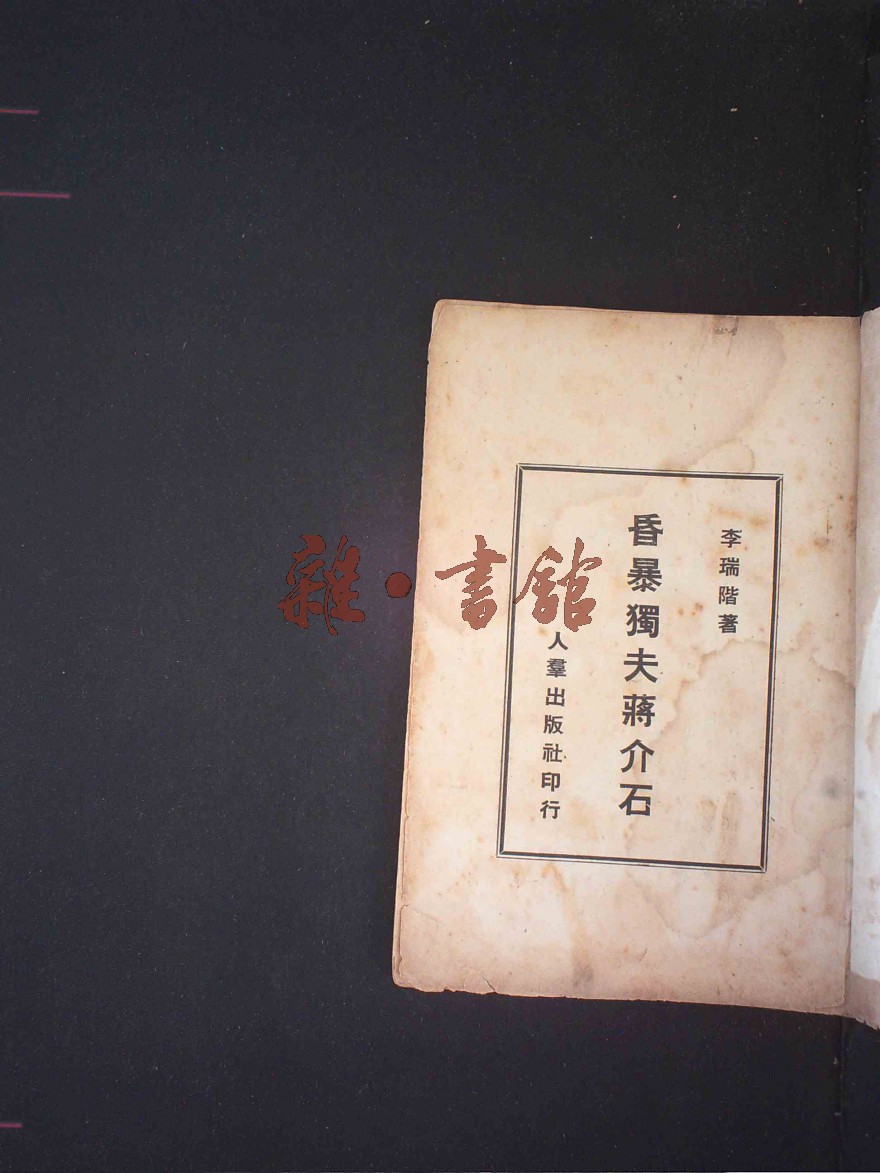 李瑞階著
昏暴獨夫蔣介石
人羣出版社印行
雜·書館